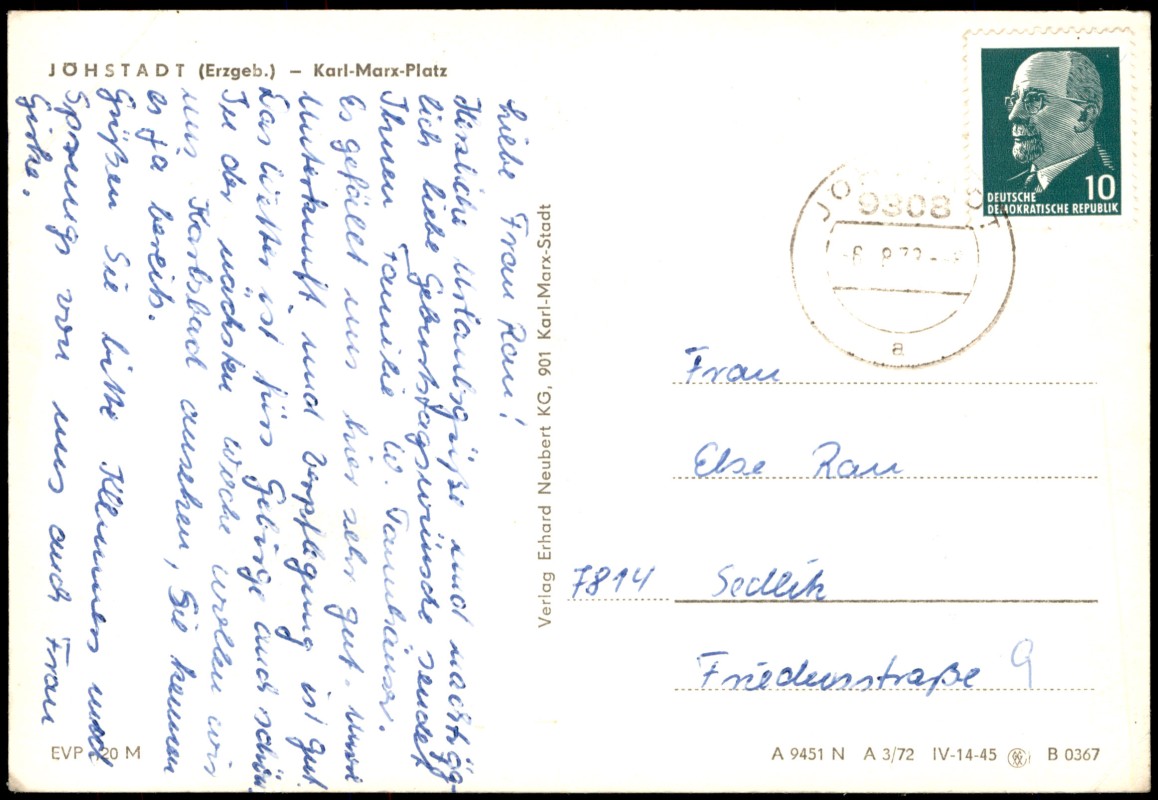 JÖHSTADT (Erzgeb.) – Karl-Marx-Platz
Liebe Frau Rau!
Herzliche Urlaubsgrüße und nachträg-
lich liebe Geburtstagswünsche sendet
Ihnen Familie W. Tannhäuser.
Es gefällt uns hier sehr gut. Unsere
Unterkunft und Verpflegung ist gut.
Das Wetter ist fürs Gebirge auch schön.
In der nächsten Woche wollen wir
uns Karlsbad ansehen, Sie kennen
es ja bereits.
Grüßen Sie bitte und
von uns auch Frau
EVP 0,20 M
Verlag Erhard Neubert KG, 901 Karl-Marx-Stadt
DEUTSCHE
DEMOKRATISCHE REPUBLIK
10
9308
a
Frau
Else Rau
7814 Sedlitz
Friedensstraße 9
A 9451 N A 3/72 IV-14-45 B 0367